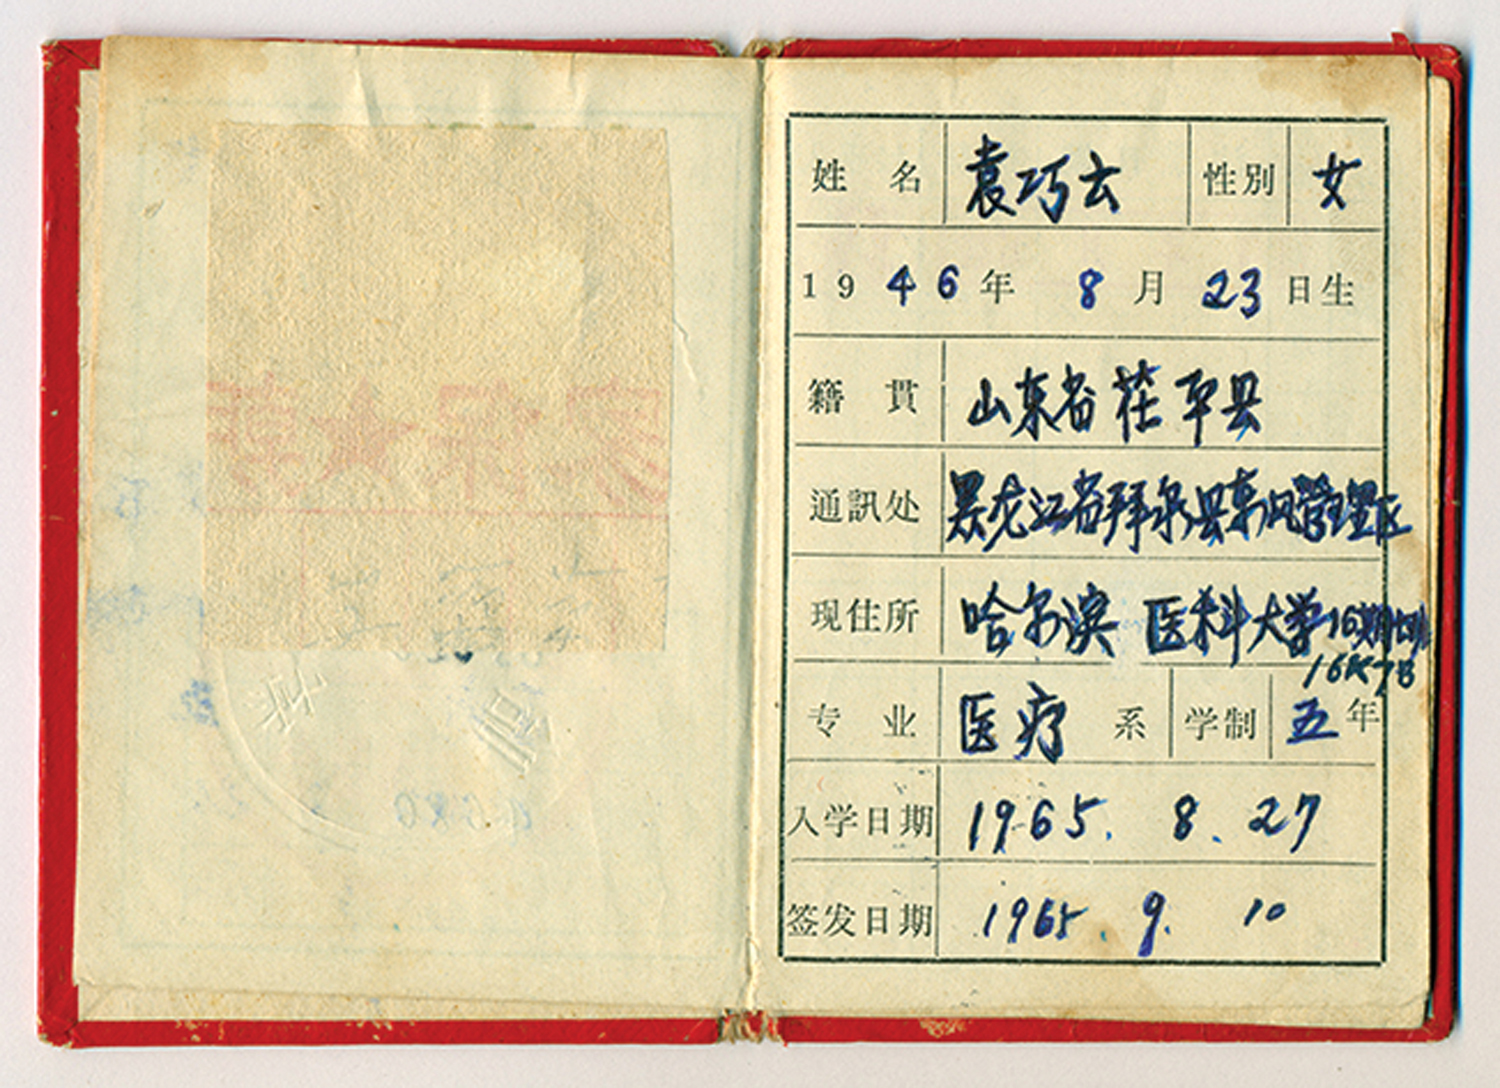 姓 名 袁巧云 性別 女
1946年 8月 23日生
籍 貫 山东省茌平县
通訊处 黑龙江省拜泉县东风管理区
现住所 哈尔滨医科大学16期
专 业 医疗系 学制 五年
入学日期 1965. 8. 27
签发日期 1965. 9. 10